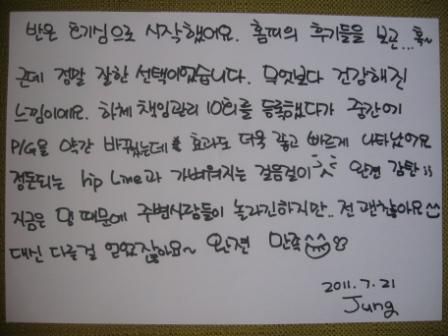 반은 호기심으로 시작했어요. 홈피의 후기들을 보곤... 훅~
근데 정말 잘한 선택이었습니다. 무엇보다 건강해진
느낌이에요. 하체 책임관리 10회를 등록했다가 중간에
P/G을 약간 바꿨는데 효과도 더욱 좋고 빠르게 나타났어요
정돈되는 hip line과 가벼워지는 걸음걸이 굿 완전 감탄!!
지금은 멍 때문에 주변사람들이 놀라긴하지만.. 전 괜찮아요
대신 다른걸 얻었잖아요~ 완전 만족
2011. 7. 21
Jung